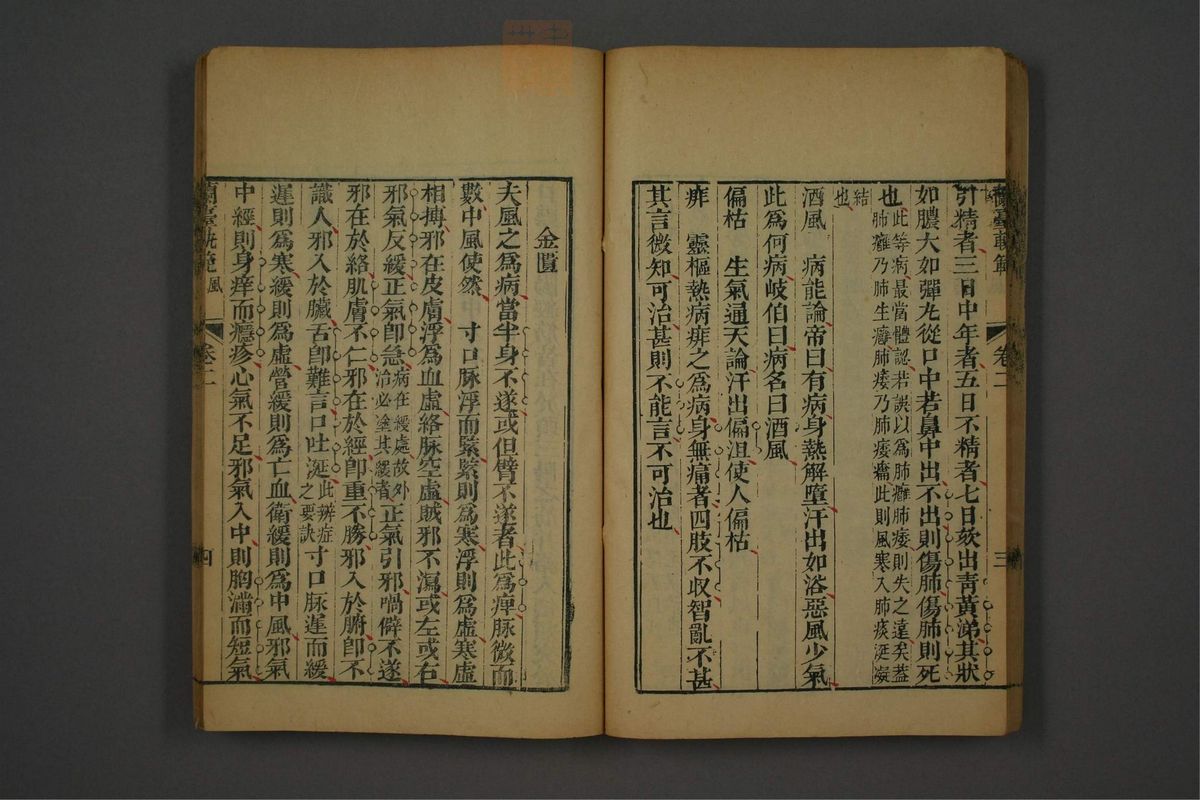 蘭臺軌範
卷二
三
引精者三日中年者五日不精者七日欬出靑黃涕其狀
如膿大如彈丸從口中若鼻中出不出則傷肺傷肺則死
也此等病最當體認若誤以爲肺癰肺痿則失之遠矣蓋
肺癰乃肺生癰肺痿乃肺痿此則風寒入肺痰涎凝
結
也
酒風　病能論帝曰有病身熱解墮汗出如浴惡風少氣
此爲何病岐伯曰病名曰酒風
偏枯　生氣通天論汗出偏沮使人偏枯
痱　靈樞熱病痱之爲病身無痛者四肢不收智亂不甚
其言微知可治甚則不能言不可治也
金匱
夫風之爲病當半身不遂或但臂不遂者此爲痺脉微而
數中風使然　寸口脉浮而緊緊則爲寒浮則爲虛寒虛
相搏邪在皮膚浮爲血虛絡脉空虛賊邪不瀉或左或右
邪氣反緩正氣卽急病在緩處故外
治必塗其緩者正氣引邪喎僻不遂
邪在於絡肌膚不仁邪在於經卽重不勝邪入於腑卽不
識人邪入於臟舌卽難言口吐涎此辨症
之要訣寸口脉遲而緩
遲則爲寒緩則爲虛營緩則爲亡血衛緩則爲中風邪氣
中經則身痒而癮疹心氣不足邪氣入中則胸滿而短氣
蘭臺軌範
風
卷二
四